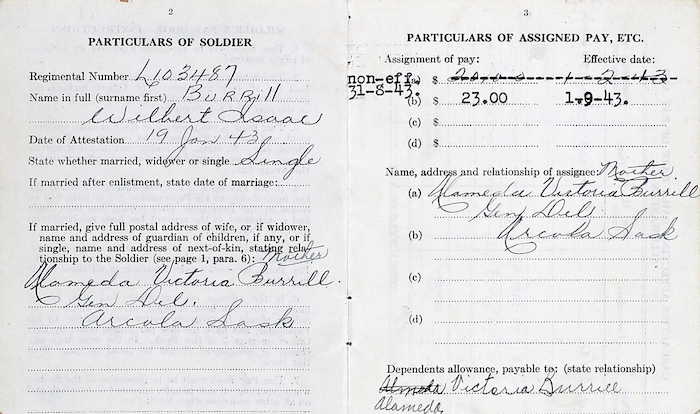 2
PARTICULARS OF SOLDIER
Regimental Number L103487
Name in full (surname first) Burrill
Wilbert Isaac
Date of Attestation 19 Jan 43
State whether married, widower or single Single
If married after enlistment, state date of marriage:
If married, give full postal address of wife, or if widower,
name and address of guardian of children, if any, or if
single, name and address of next-of-kin, stating rela-
tionship to the Soldier (see page 1, para. 6): Mother
Alameda Victoria Burrill.
Gen Del.
Arcola Sask
3
PARTICULARS OF ASSIGNED PAY, ETC.
Assignment of pay: Effective date:
non-eff. (a) $ 20.00 1-2-43
31-8-43. (b) $ 23.00 1-9-43.
(c) $
(d) $
Name, address and relationship of assignee: Mother
(a) Alameda Victoria Burrill
Gen Del
(b) Arcola Sask
(c)
(d)
Dependents allowance, payable to: (state relationship)
Almeda Victoria Burrill
Alameda